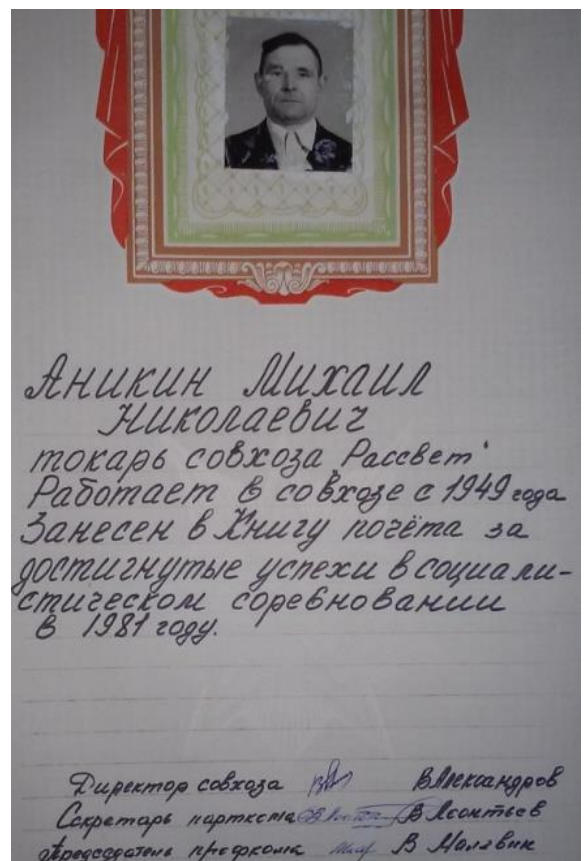 Аникин Михаил
Николаевич
токарь совхоза „Рассвет"
Работает в совхозе с 1949 года
Занесен в Книгу почёта за
достигнутые успехи в социали-
стическом соревновании
в 1981 году.
Директор совхоза В Александров
Секретарь парткома В Леонтьев
Председатель профкома В